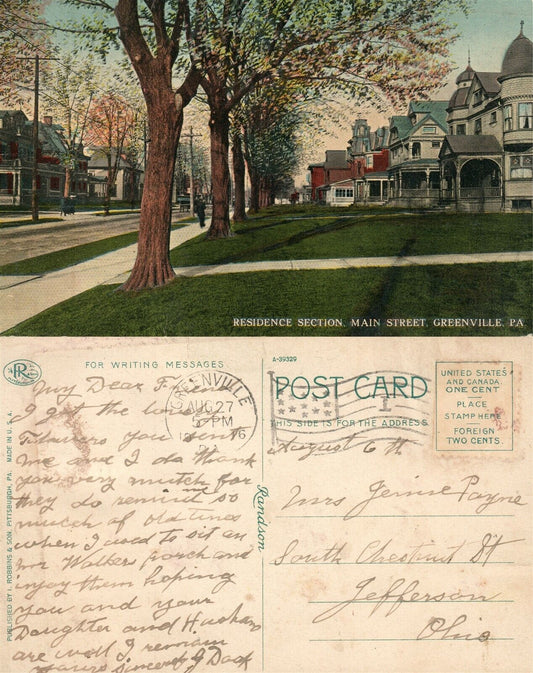 RESIDENCE SECTION, MAIN STREET, GREENVILLE, PA.
FOR WRITING MESSAGES
PR
My Dear Friend
I got the lovely
Flowers you sent
me and I do thank
you very mutch for
they do remind so
mutch of old times
when I used to sit on
mr Walkers porch and
injoy them hoping
you and your
Daughter and Husban
are well I remain
yours Sincerly J Dack
PUBLISHED BY I. ROBBINS & SON, PITTSBURGH, PA. MADE IN U.S.A.
Randson
A-39329
GREENVILLE
AUG 27
5 PM
POST CARD
THIS SIDE IS FOR THE ADDRESS
UNITED STATES
AND CANADA
ONE CENT
PLACE
STAMP HERE
FOREIGN
TWO CENTS.
August 6th
Mrs Jennie Payne
South Chestnut St
Jefferson
Ohio